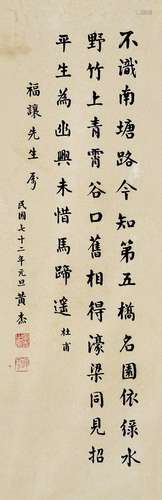 不識南塘路今知第五橋名園依綠水
野竹上青霄谷口舊相得濠梁同見招
平生為幽興未惜馬蹄遙 杜甫
福讓先生屬
民國七十二年元旦 黃杰